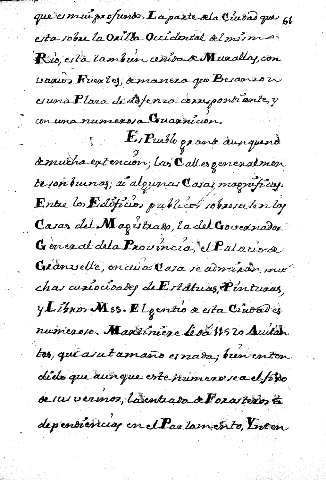 que es mui profundo. La parte de la Ciudad que 61
esta sobre la Orilla Occidental del mismo
Rio, esta tambien ceñida de Murallas, con
varios Fuertes, de manera que Besanzon
es una Plaza de defenza correspondiente, y
con una numerosa Guarnicion.
Es Pueblo grande aunque no
de mucha extencion; las Calles generalmen
te son buenas; ai algunas Casas magnificas.
Entre los Edificios publicos sobresalen las
Casas del Magistrado, la del Governador
General de la Provincia, el Palacio de
Granvelle, en cuia Casa se admiran mu
chas curiocidades de Estatuas, Pinturas,
y Libros Mss. El gentio de esta Ciudad es
numeroso. Martiniere le da 11520 Avitan
tes, que a su tamaño es nada; bien enten
dido que aunque este numero sea el fixo
de sus vecinos, la entrada de Forasteros
dependiencias en el Parlamento, Ynten